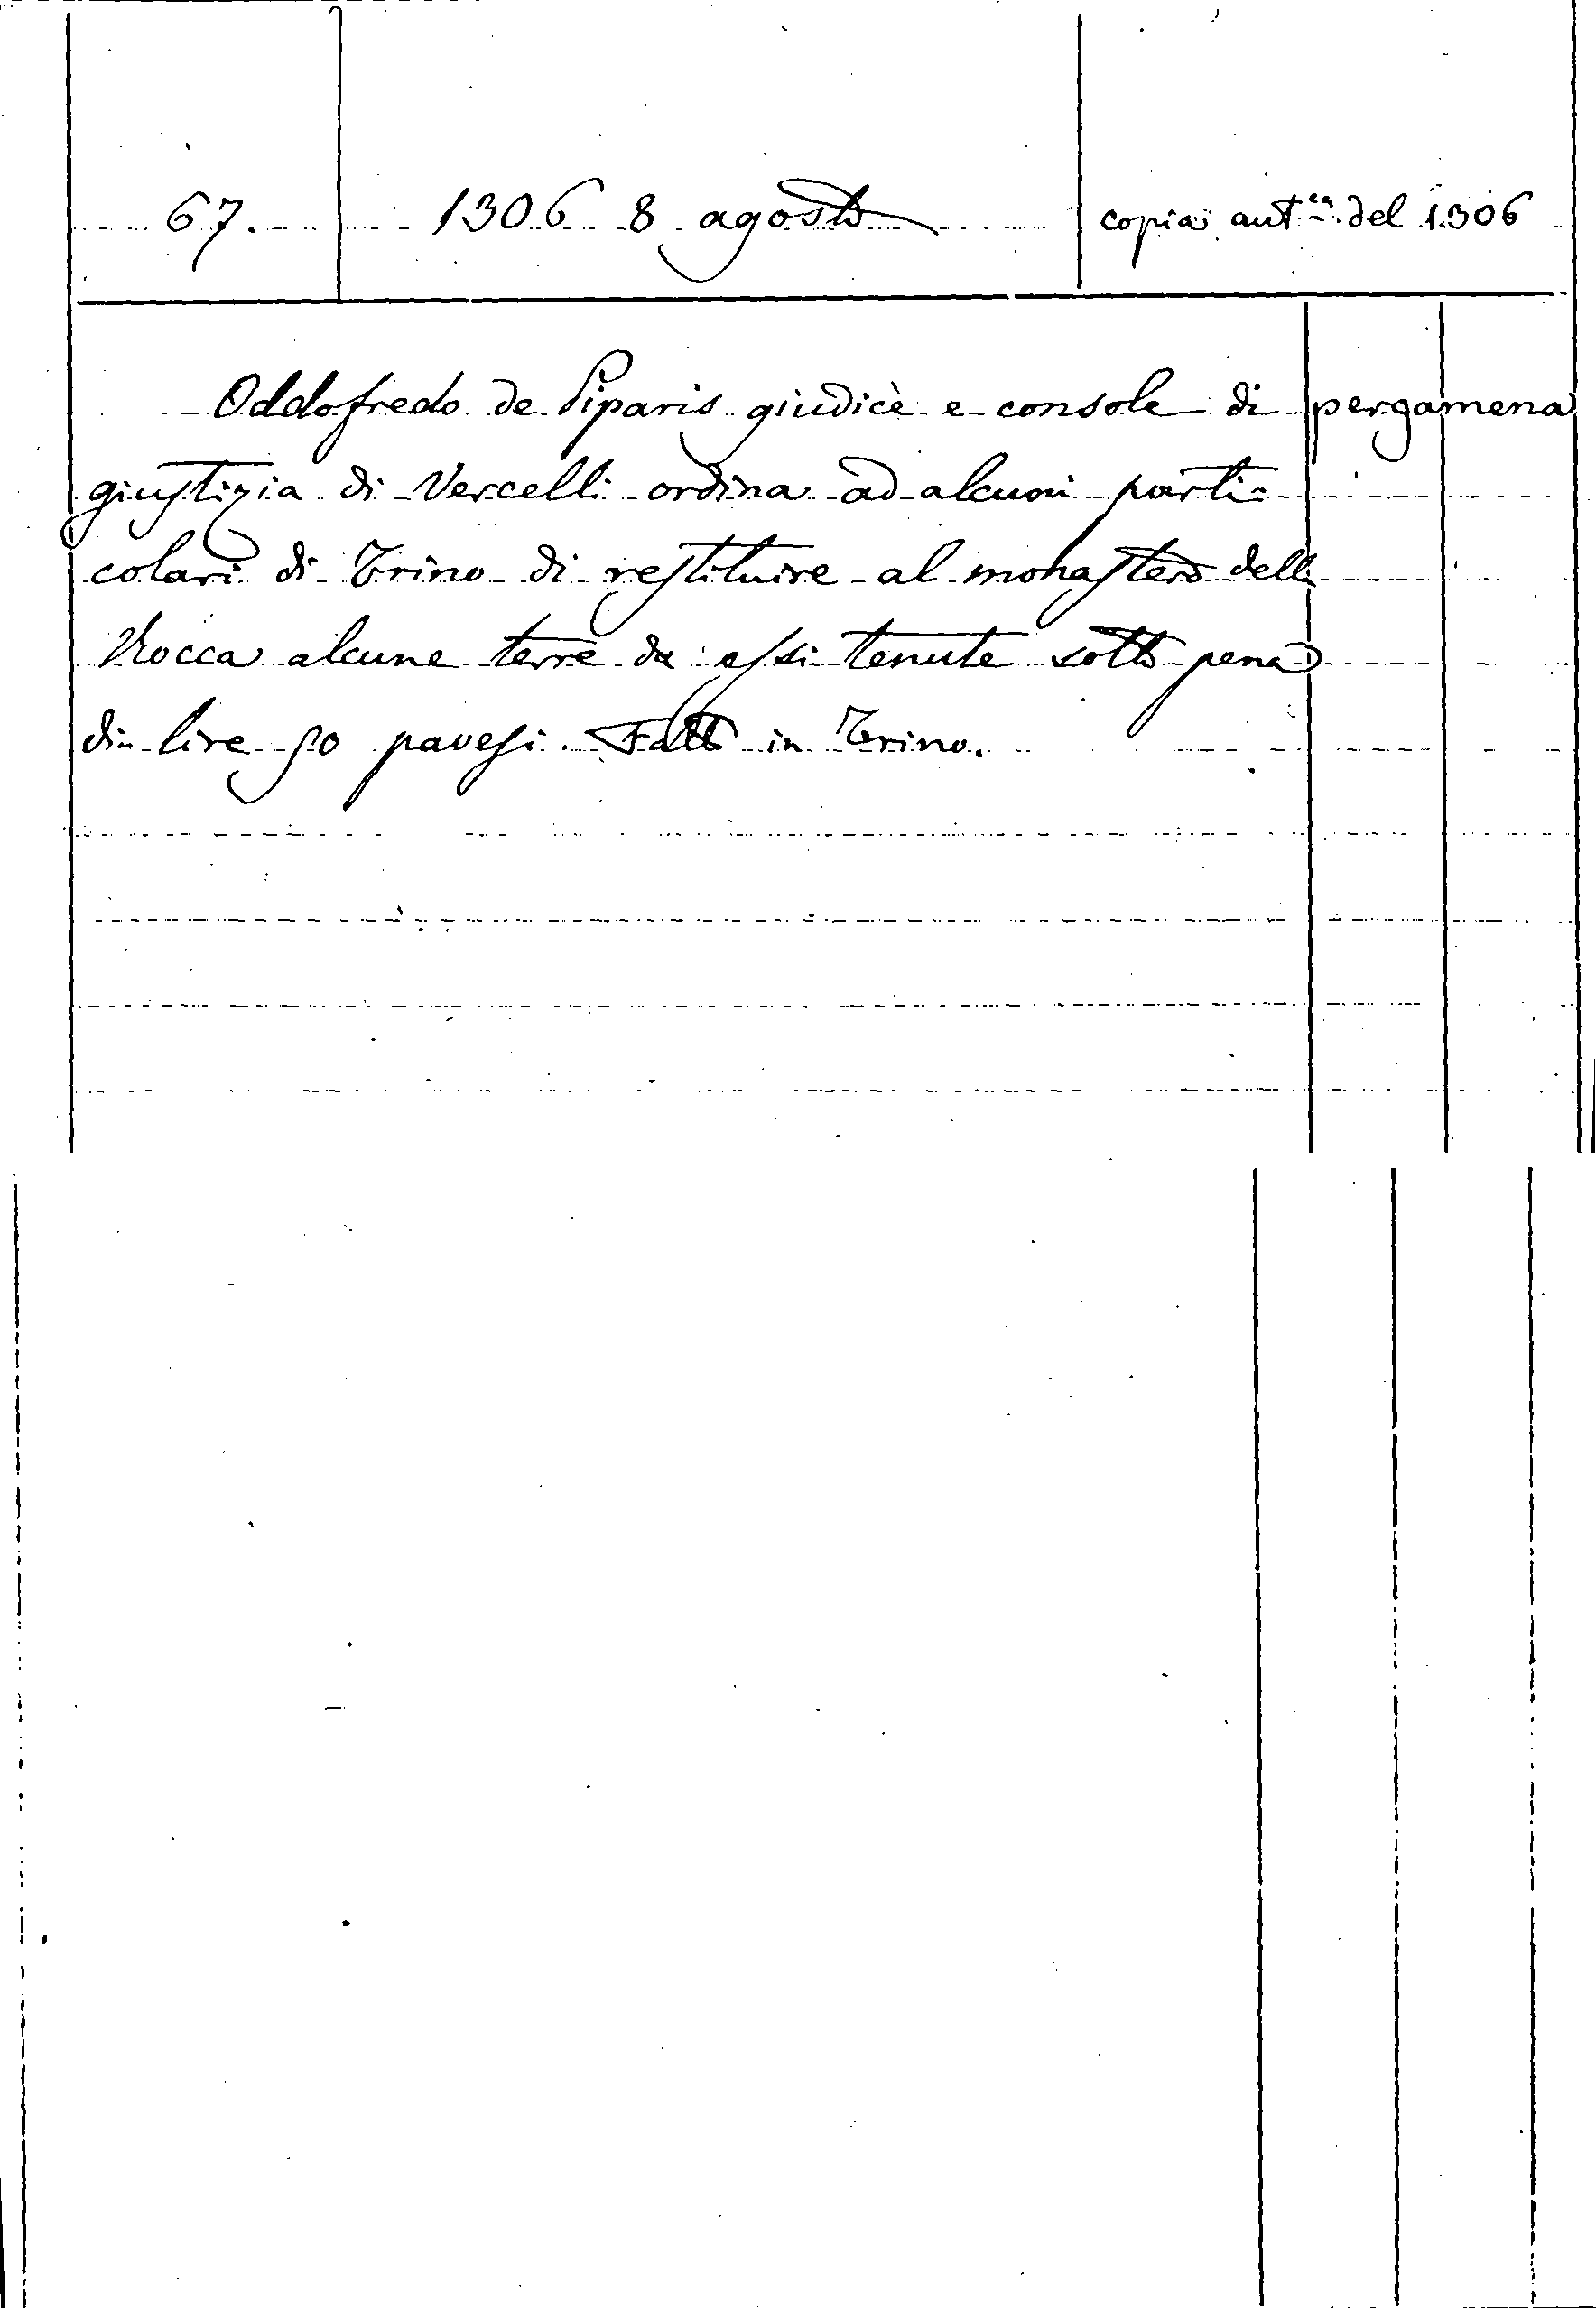 67. 1306 8 agosto copia aut.ca del 1306
Oddofredo de Piparis giudice e console di pergamena
giustizia di Vercelli ordina ad alcuni parti=
colari di Trino di restituire al monastero della
Rocca alcune terre da essi tenute sotto pena
di lire 50 pavesi. Fatto in Trino.